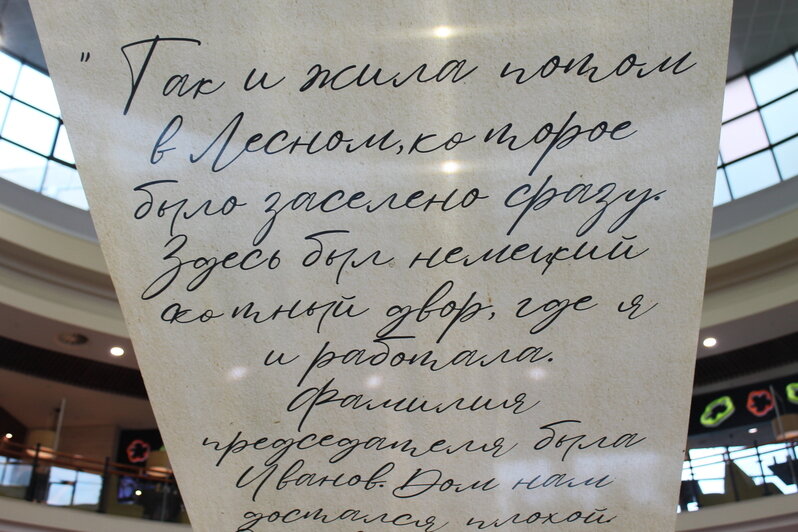 " Так и жила потом
в Лесном, которое
было заселено сразу.
Здесь был немецкий
скотный двор, где я
и работала.
Фамилия
председателя была
Иванов. Дом нам
достался плохой.